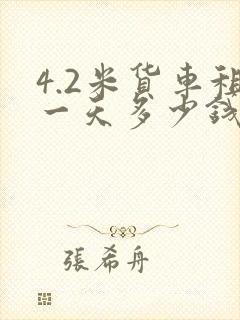 4.2米货车租
一天多少钱
張希舟